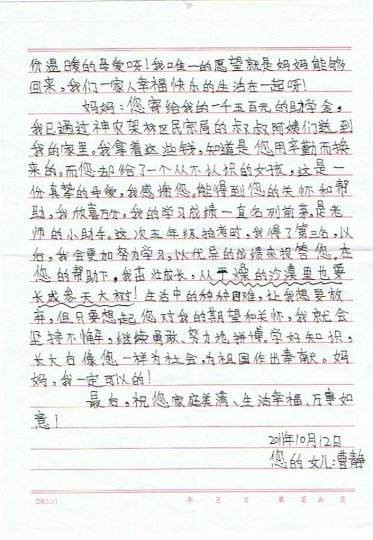 份温暖的母爱呀!我唯一的愿望就是妈妈能够
回来,我们一家人幸福快乐的生活在一起呀!
妈妈:您寄给我的一千五百元的助学金,
我已通过神农架林区民宗局的叔叔阿姨们送到
我的家里。我拿着这些钱,知道是您用辛勤而换
来的。而您却给了一个从不认识的女孩,这是一
份真挚的母爱,我感谢您。能得到您的关怀和帮
助,我欣喜万分。我的学习成绩一直名列前茅,是老
师的小助手。这次五年级抽考时,我得了第三名,以
后,我会更加努力学习,以优异的成绩来报答您。在
您的帮助下,我茁壮成长,从干燥的沙漠里也要
长成参天大树!生活中的种种困难,让我想要放
弃,但只要想起您对我的期望和关怀,我就会
坚持不懈,继续勇敢、努力地拼搏,学好知识,
长大后像您一样为社会,为祖国作出奉献。妈
妈,我一定可以的!
最后,祝您家庭美满、生活幸福、万事如
意!
2011年10月12日
您的女儿:曹静
DB501 年 月 日 第 页 共 页